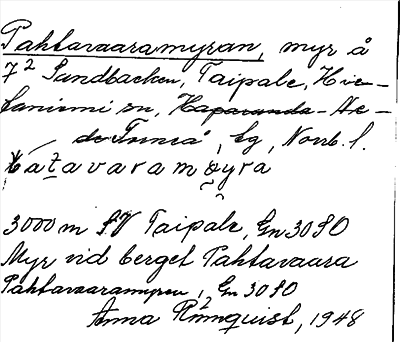 Pahtavaaramyran, myr å
7² Sandbacken, Taipale, Hie-
taniemi sn, Haparanda- Ne-
derTorneå, lg, Norrb. l.
3000 m SV Taipale, Gn 30 SO
Myr vid berget Pahtavaara
Pahtavaaramyren, Gn 30 SO
Anna Rönnquist, 1948